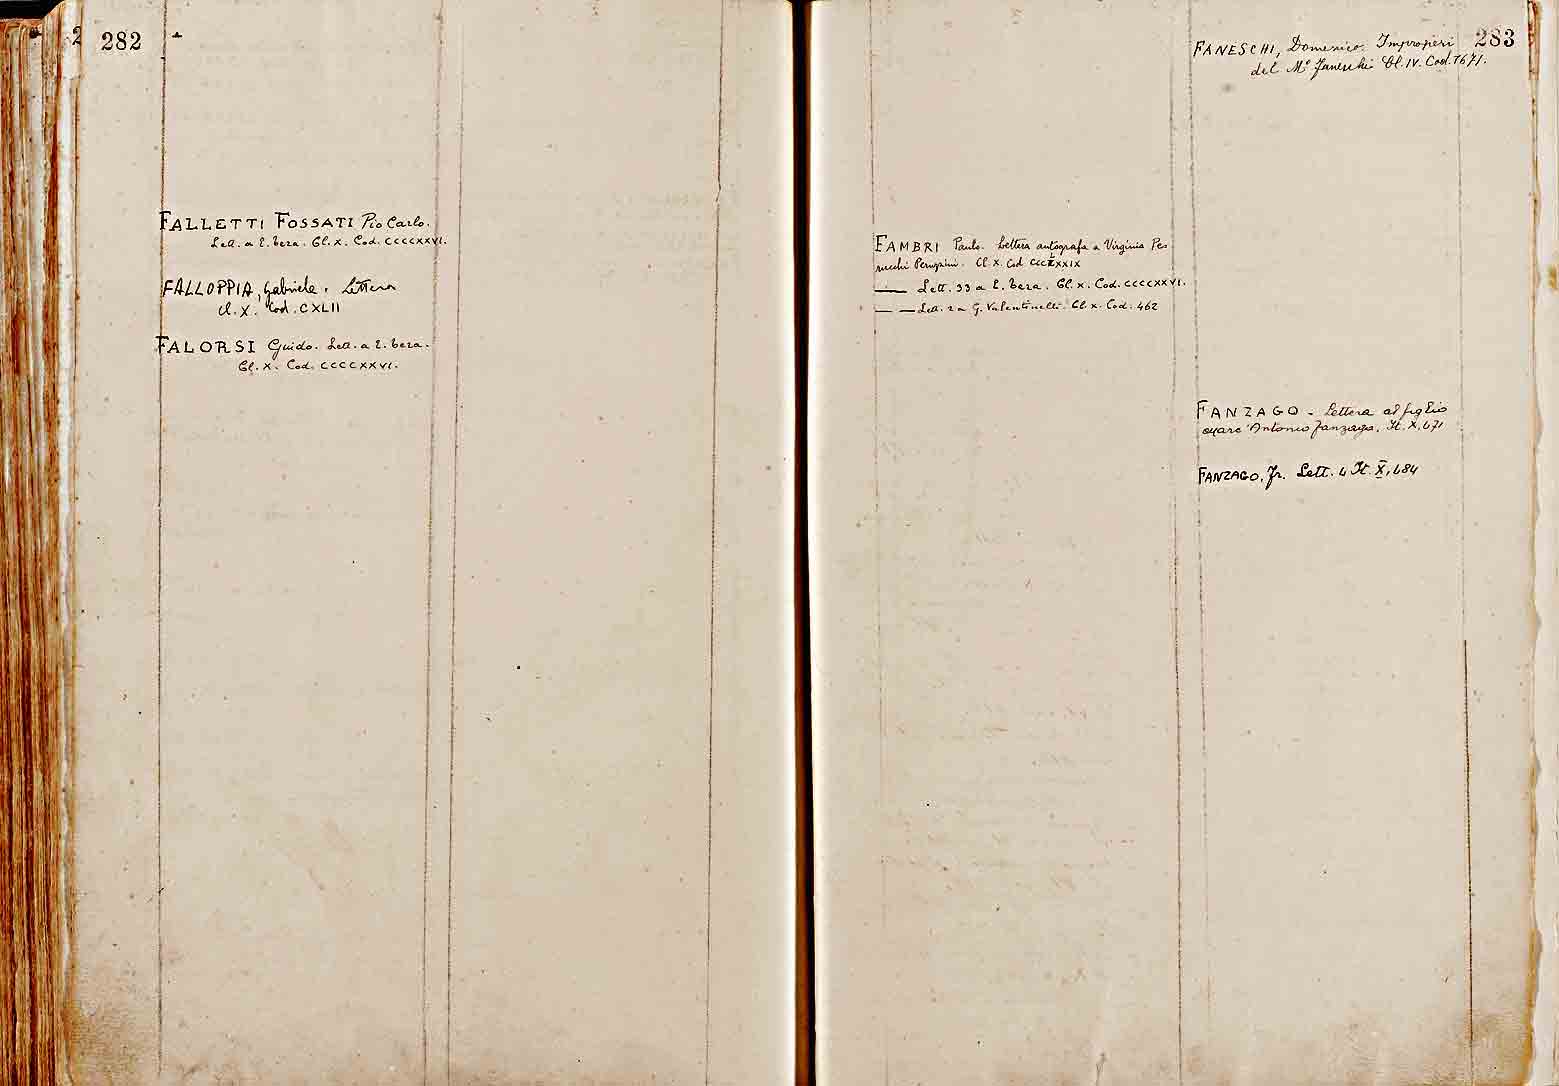 282
FALLETTI FOSSATI Pio Carlo.
Lett. a E. Teza. Cl. X. Cod. CCCCXXVI.
FALLOPPIA, Gabriele. Lettera
Cl. X. Cod. CXLII
FALORSI Guido. Lett. a E. Teza.
Cl. X. Cod. CCCCXXVI.
283
FANESCHI, Domenico. Improperi
del Mº Faneschi Cl. IV. Cod. 1671.
FAMBRI Paulo. Lettera autografa a Virginia Pe
ruzzini. Cl. X. Cod
— Lett. 33 a E. Teza. Cl. X. Cod. CCCCXXVI.
— — Lett. 2 a G. Valentinelli. Cl. X. Cod. 462
FANZAGO - Lettera al figlio
Antonio Fanzago. It. X, 471
FANZAGO, Fr. Lett. 4 It. X, 484